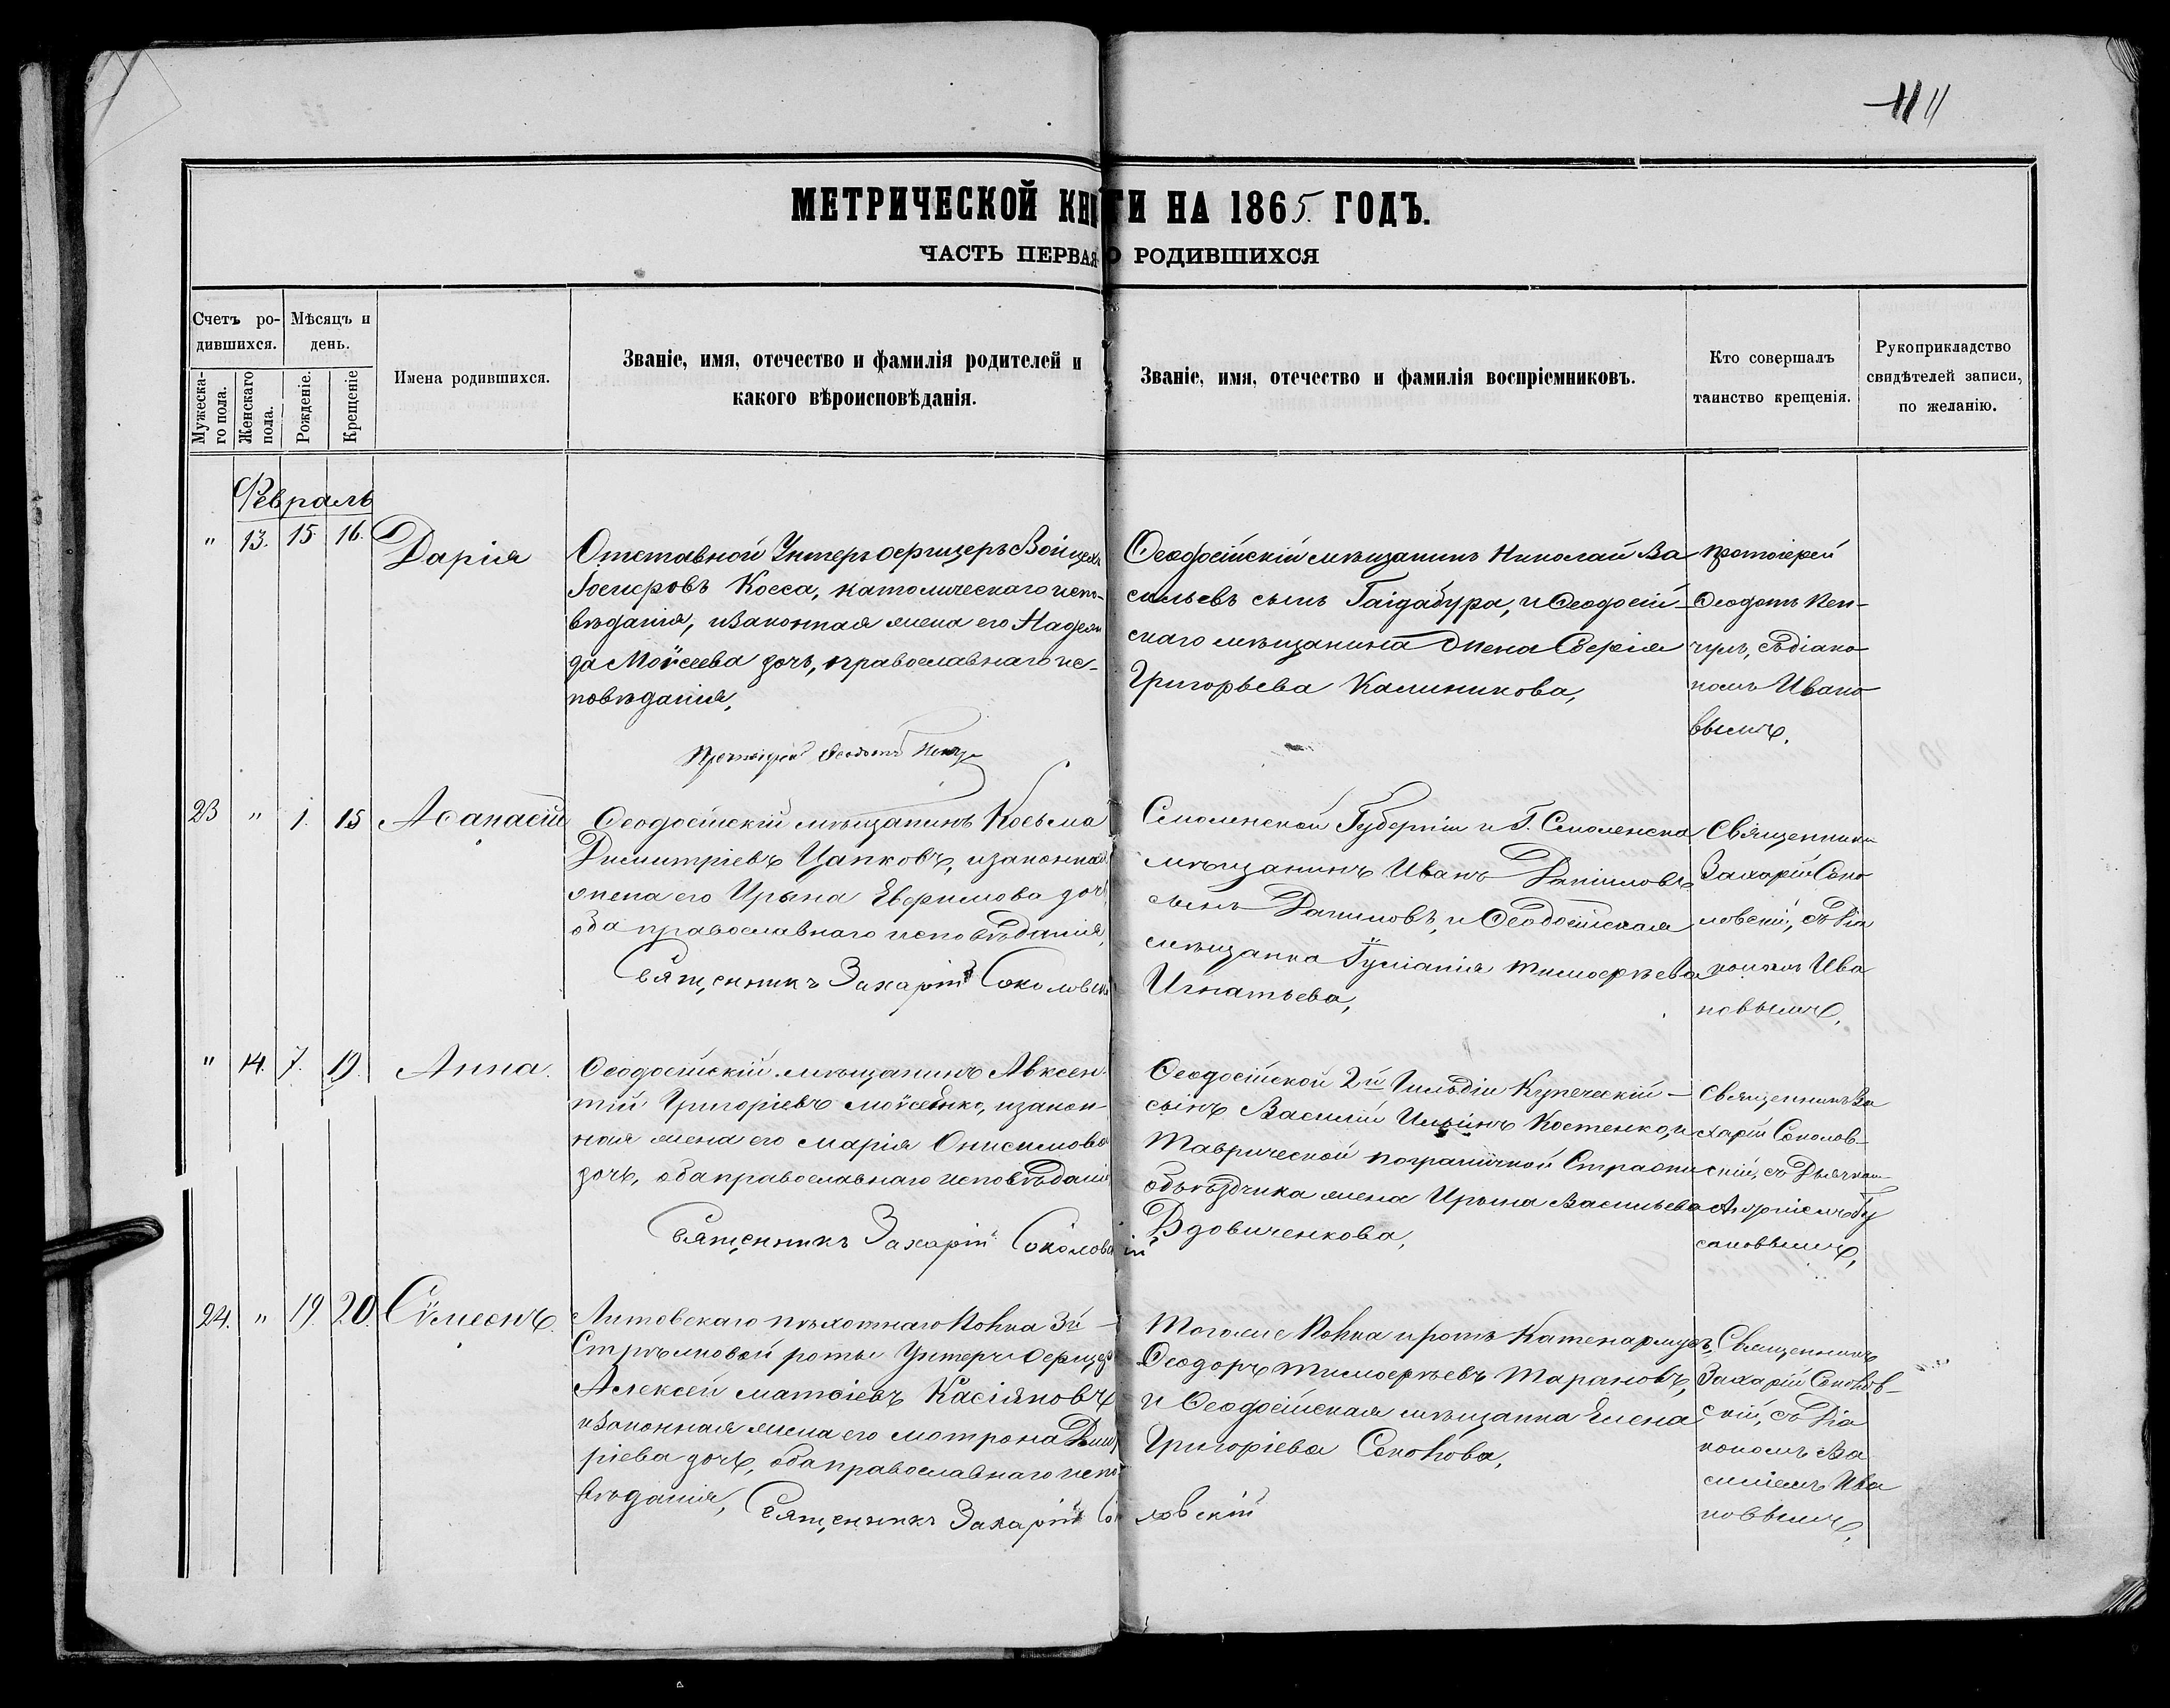 11
МЕТРИЧЕСКОЙ КНИГИ НА 1865. ГОДЪ.
ЧАСТЬ ПЕРВАЯ О РОДИВШИХСЯ
Счетъ ро-
дившихся.
Мѣсяцъ и
день.
Мужеска-
го пола.
Женскаго
пола.
Рожденіе.
Крещеніе
Имена родившихся.
Званіе, имя, отечество и фамилія родителей и
какого вѣроисповѣданія.
Званіе, имя, отечество и фамилія воспріемниковъ.
Кто совершалъ
таинство крещенія.
Рукоприкладство
свидѣтелей записи,
по желанію.
Февраль
" 13. 15. 16.
Дарія
Отставной Унтеръ Офицеръ Войцехъ
Косса, католическаго испо-
вѣданія, и законная жена его Надеж
да Моисеева дочь, православнаго ис-
повѣданія,
Протоіерей Ѳеодотъ
Ѳеодосійскій мѣщанинъ Николай Ва
сильевъ сынъ Гайдабура, и Ѳеодосій-
скаго мѣщанина жена
Григорьева Калиникова,
Протоіерей
Ѳеодотъ
съ діако
номъ Ивано
вымъ.
23 " 1. 15
Аѳанасій
Ѳеодосійскій мѣщанинъ Косьма
Димитріевъ Цапковъ, и законная
жена его Ирына Евфимова доч
оба православнаго исповѣданія,
Священникъ Захарій Соколовскі
Смоленской Губерніи и Г. Смоленска
мѣщанинъ Иванъ Даніиловъ
сынъ Даниловъ, и Ѳеодосійская
мѣщанка Іуліанія Тимоѳеѣева
Игнатьева,
Священникъ
Захарій Соко
ловскій, съ Діа
кономъ Ива
новымъ,
" 14. 7. 19.
Анна.
Ѳеодосійскій мѣщанинъ Авксен
тій Григоріевъ Моисеенко, и закон-
ная жена его Марія Онисимова
дочь, оба православнаго исповѣданія
Священникъ Захарій Соколовскій
Ѳеодосійской 2й Гильдіи Купеческій
сынъ Василій Ильинъ Костенко, и
Таврической пограничной Стражи
объѣздчика жена Ирына Васильева
Вдовиченкова,
Священникъ За
харій Соколов-
скій, съ Дьячком
24. " 19. 20
Сѵмеонъ.
Литовскаго пѣхотнаго Полка 3й
Стрѣлковой роты Унтеръ Офицеръ
Алексей Матѳіевъ Касіяновъ
и Законная жена его Мотрона Дими
ріева дочь, оба православнаго испо
вѣданія, Священникъ Захарій Соколовскій
Тогоже Полка и роты Каптенармусъ,
Ѳеодоръ Тимоѳеѣевъ Тарановъ,
и Ѳеодосійская мѣщанка Елена
Григоріева Соколова,
Священникъ
Захарій Соколов-
скій, съ Діа
кономъ Ва
силіемъ Ива
новымъ,